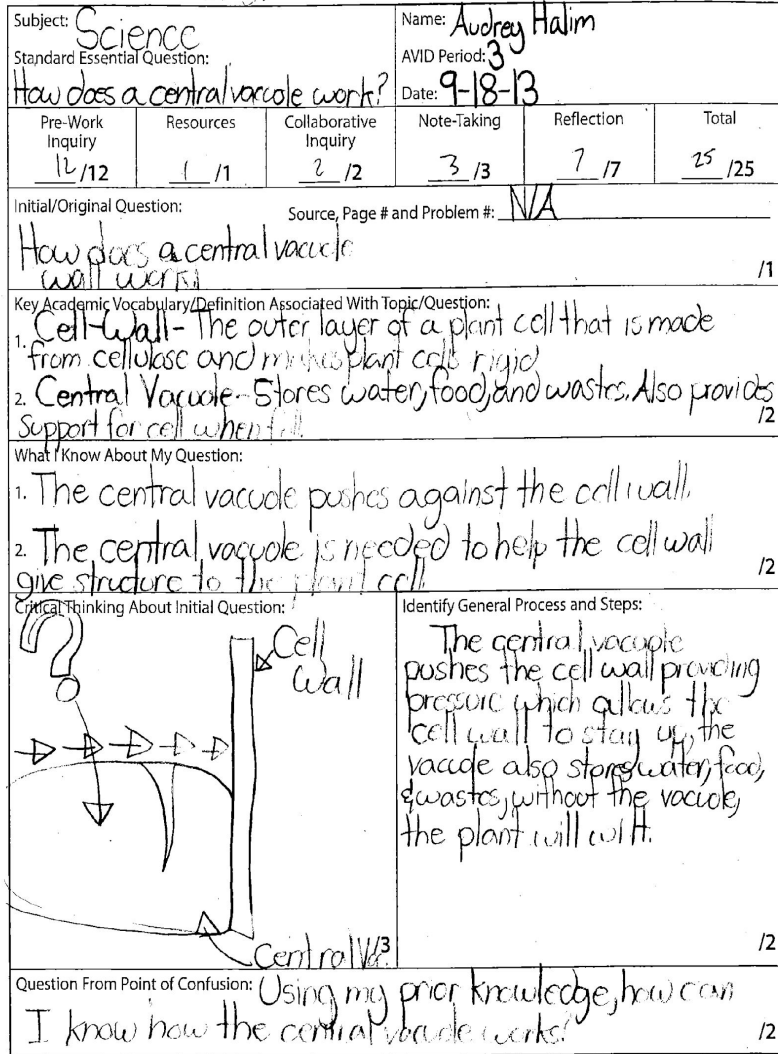 Subject: Science
Name: Audrey Halim
Standard Essential Question:
AVID Period: 3
How does a central vacuole work?
Date: 9-18-13
Pre-Work Inquiry
Resources
Collaborative Inquiry
Note-Taking
Reflection
Total
12 /12
1 /1
2 /2
3 /3
7 /7
25 /25
Initial/Original Question:
Source, Page # and Problem #: N/A
How does a central vacuole
wall work
/1
Key Academic Vocabulary/Definition Associated With Topic/Question:
1. Cell-Wall- The outer layer of a plant cell that is made
from cellulose and makes plant cells rigid
2. Central Vacuole- Stores water, food, and wastes. Also provides
/2
support for cell when full.
What I Know About My Question:
1. The central vacuole pushes against the cell wall.
2. The central vacuole is needed to help the cell wall
give structure to the plant cell.
/2
Critical Thinking About Initial Question:
?
Cell
Wall
Central Vac.
/3
Identify General Process and Steps:
The central vacuole
pushes the cell wall providing
pressure which allows the
cell wall to stay up, the
vacuole also stores water, food,
& wastes, without the vacuole,
the plant will wilt.
/2
Question From Point of Confusion: Using my prior knowledge, how can
I know how the central vacuole works?
/2